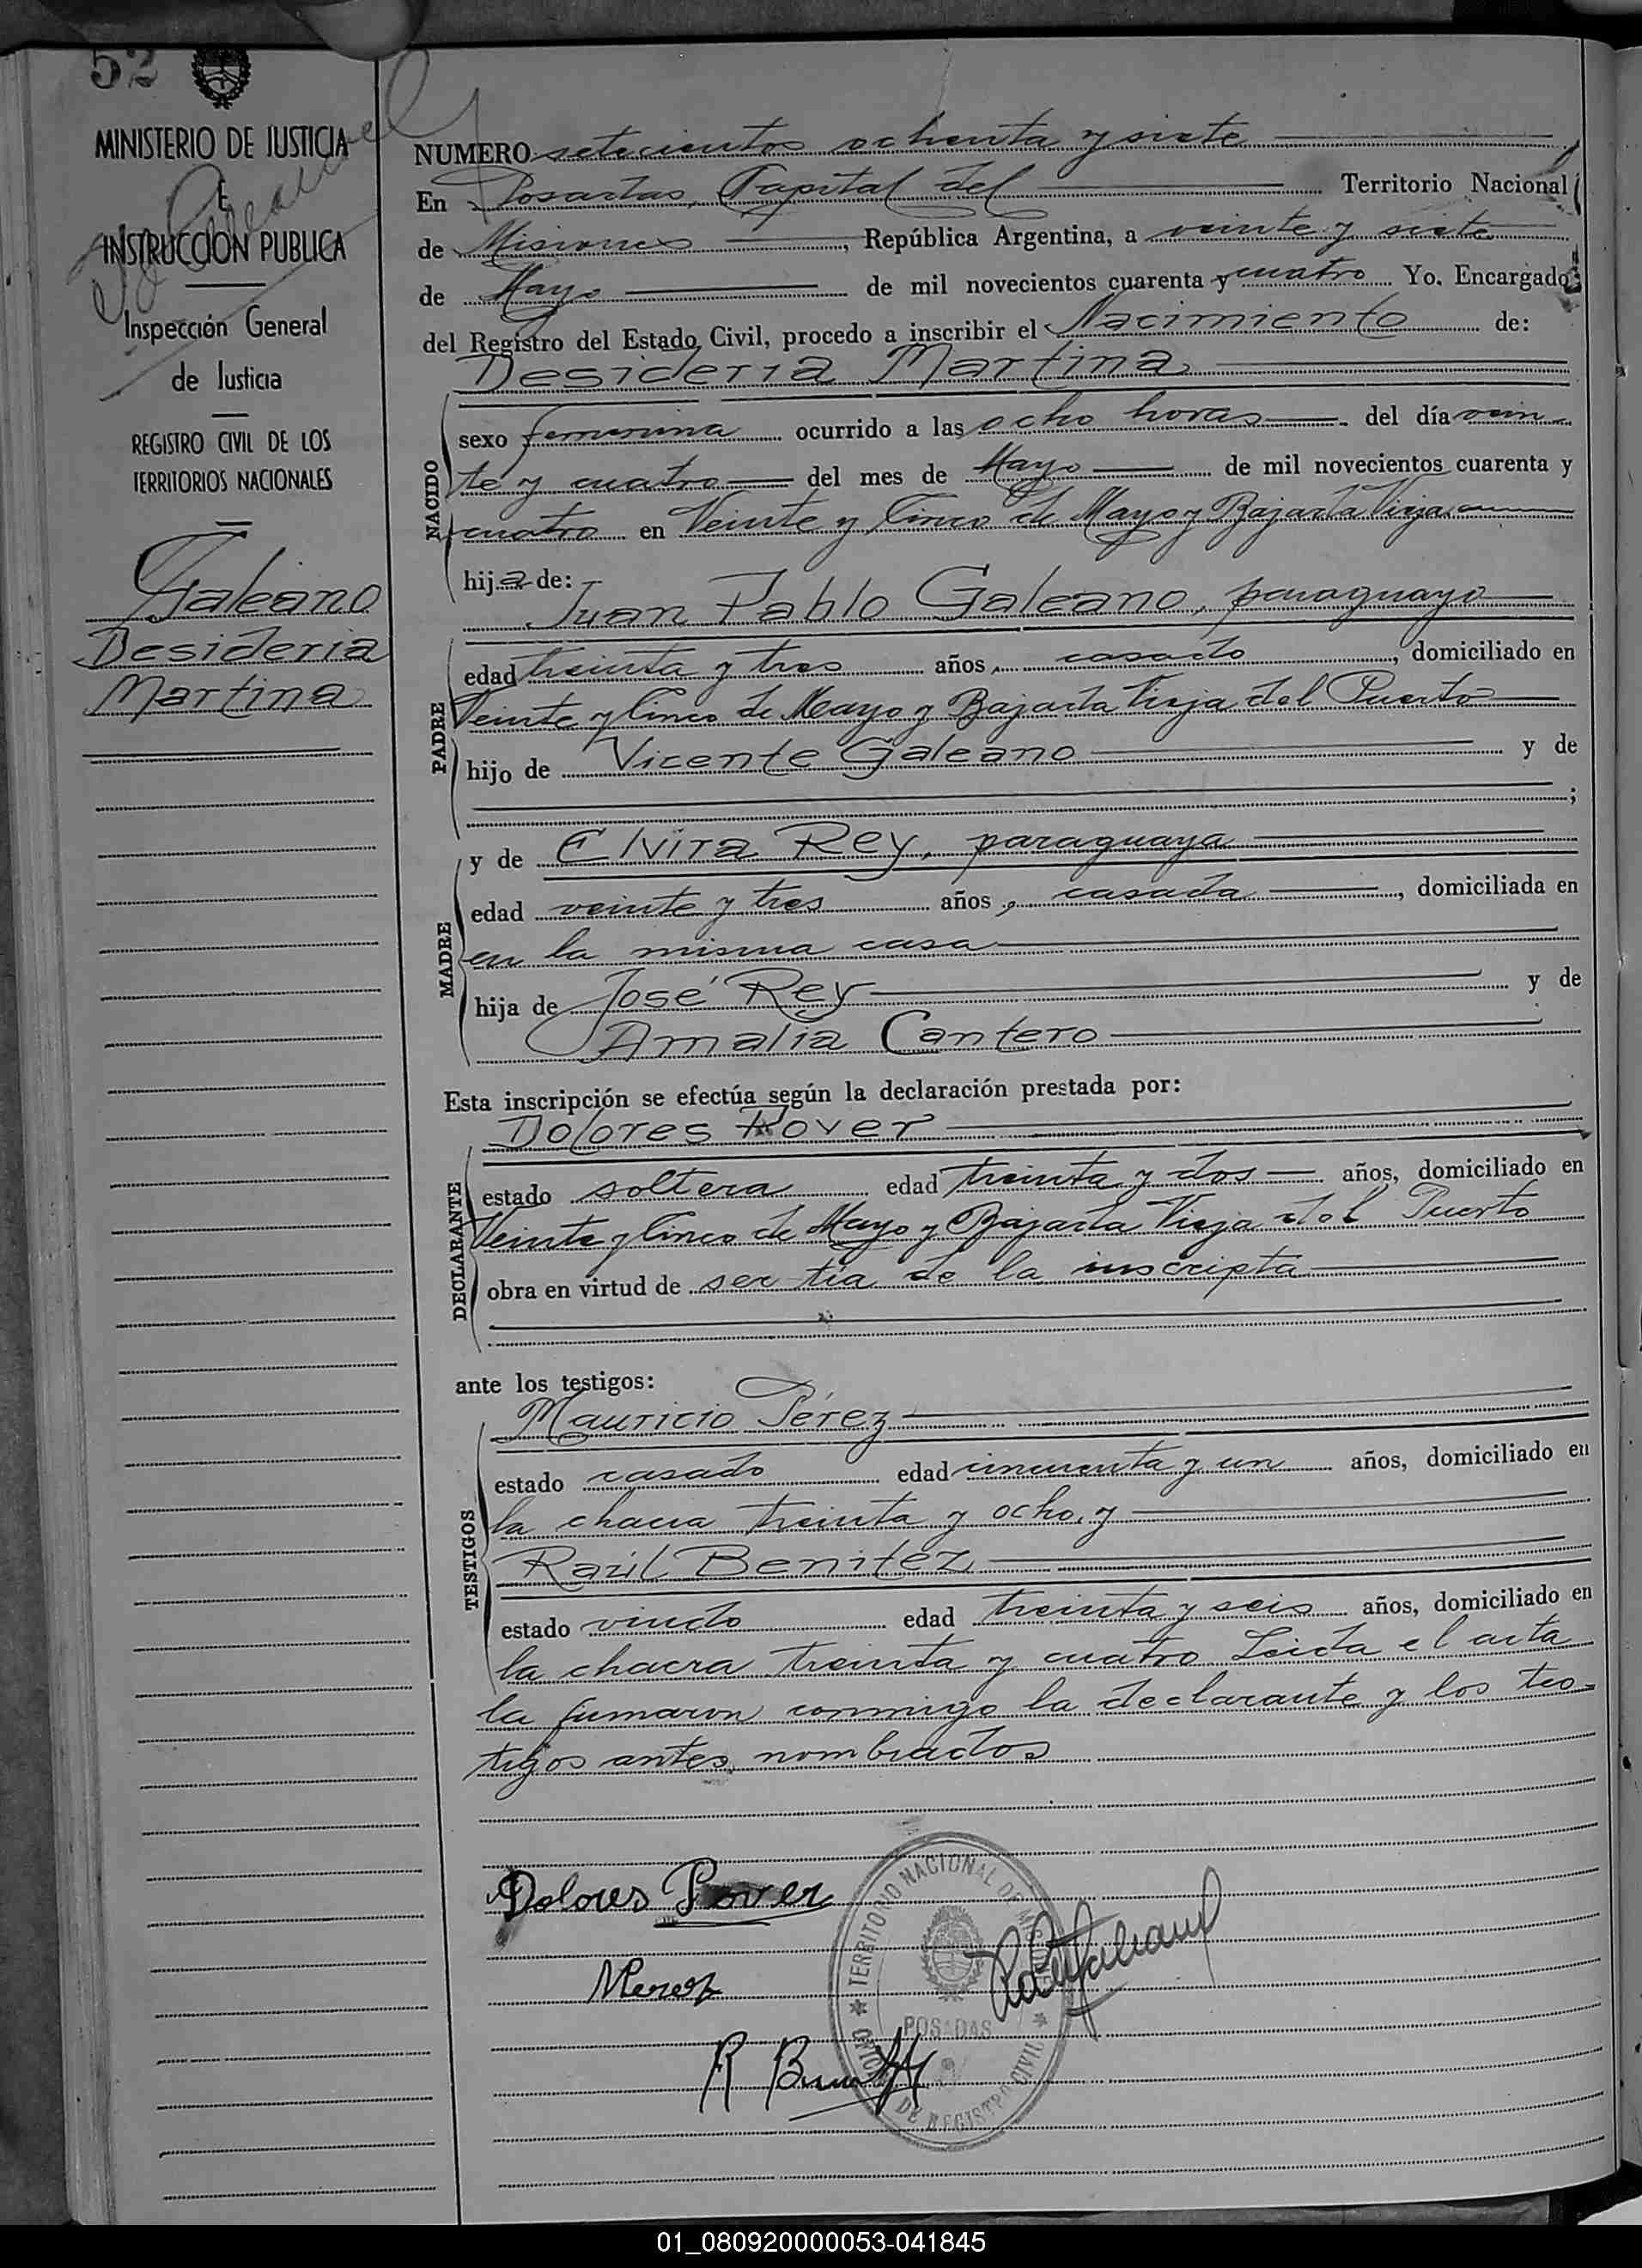 52
MINISTERIO DE JUSTICIA
E
INSTRUCCION PUBLICA
Inspección General
de Justicia
REGISTRO CIVIL DE LOS
TERRITORIOS NACIONALES
Galeano
Desideria
Martina
NUMERO setecientos ochenta y siete
En Posadas, Capital del Territorio Nacional
de Misiones, República Argentina, a veinte y siete
de Mayo de mil novecientos cuarenta y cuatro Yo. Encargado
del Registro del Estado Civil, procedo a inscribir el Nacimiento de:
Desideria Martina
NACIDO
sexo femenina ocurrido a las ocho horas del día vein
te y cuatro del mes de Mayo de mil novecientos cuarenta y
cuatro en Veinte y Cinco de Mayo y Bajada Vieja
hija de:
Juan Pablo Galeano, paraguayo
PADRE
edad treinta y tres años, casado, domiciliado en
Veinte y Cinco de Mayo y Bajada Vieja del Puerto
hijo de Vicente Galeano y de
;
y de Elvira Rey, paraguaya
MADRE
edad veinte y tres años, casada, domiciliada en
en la misma casa
hija de José Rey y de
Amalia Cantero
Esta inscripción se efectúa según la declaración prestada por:
Dolores Rover
DECLARANTE
estado soltera edad treinta y dos años, domiciliado en
Veinte y Cinco de Mayo y Bajada Vieja del Puerto
obra en virtud de ser tia de la inscripta
ante los testigos:
Mauricio Pérez
TESTIGOS
estado casado edad cincuenta y un años, domiciliado en
la chacra treinta y ocho, y
Raúl Benitez
estado viudo edad treinta y seis años, domiciliado en
la chacra treinta y cuatro. Leida el acta
la firmaron conmigo la declarante y los tes-
tigos antes nombrados
Dolores Rover
MPerez
R Benitez
TERRITORIO NACIONAL DE MISIONES
POSADAS
OFICINA DE REGISTRO CIVIL
01_080920000053-041845